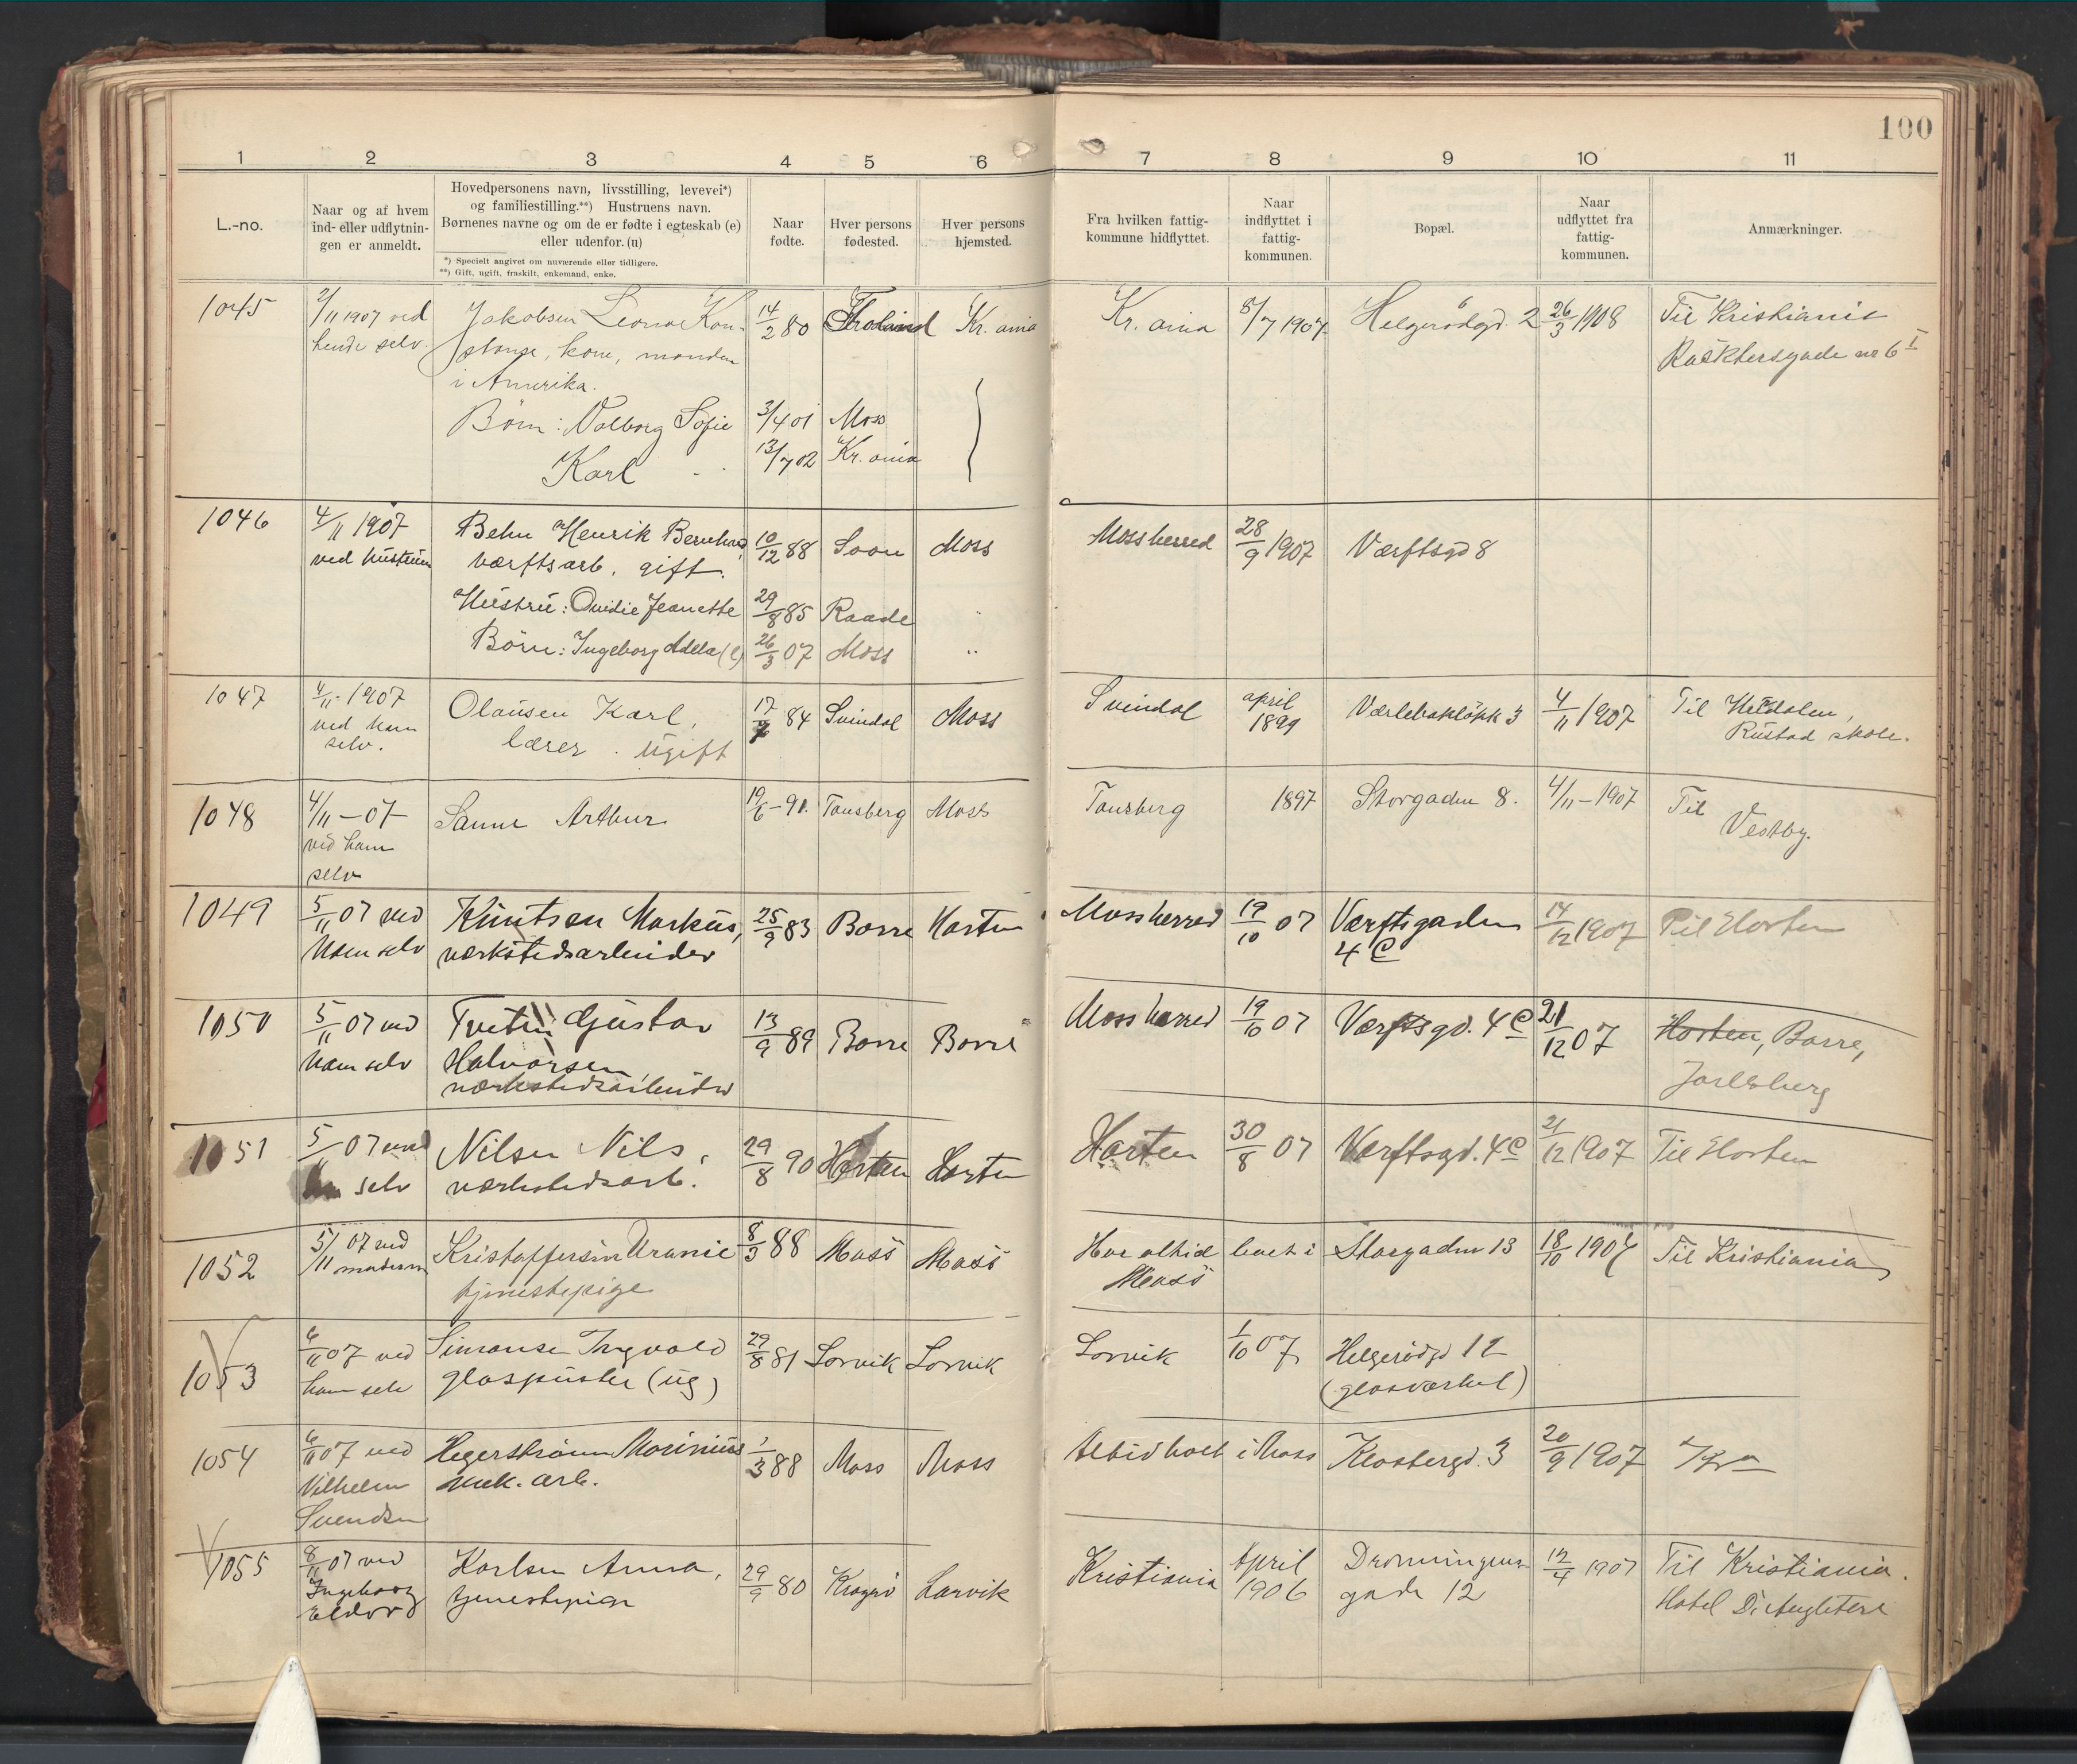 100
1 2 3 4 5 6 7 8 9 10 11
L.-no.
Naar og af hvem
ind- eller udflytnin-
gen er anmeldt.
Hovedpersonens navn, livsstilling, levevei*)
og familiestilling.**) Hustruens navn.
Børnenes navne og om de er fødte i egteskab (e)
eller udenfor. (u)
*) Specielt angivet om nuværende eller tidligere.
**) Gift, ugift, fraskilt, enkemand, enke.
Naar
fødte.
Hver persons
fødested.
Hver persons
hjemsted.
Fra hvilken fattig-
kommune hidflyttet.
Naar
indflyttet i
fattig-
kommunen.
Bopæl.
Naar
udflyttet fra
fattig-
kommunen.
Anmærkninger.
1045 2/11 1907 ved Jakobsen Leona Kon- 14/2 80 Kr. ania Kr. ania 8/7 1907 Helgerødgd. 2 26/3 1908 Til Kristiania
hende selv. stanse, kone, manden nr 6 I
i Amerika.
Børn: Valborg Sofie 3/4 01 Moss
Karl 13/7 02 Kr. ania
1046 4/11 1907 Behn Henrik Bernhard, 10/12 88 Soon Moss Mossherred 28/9 1907 Værftsgd 8
ved hustruen værftsarb. gift.
Hustru: Ovidie Jeanette 29/8 85 Raade "
Børn: Ingeborg Adela (e) 26/3 07 Moss "
1047 4/11 1907 Olausen Karl, 17/7 84 Svindal Moss Svindal april 1899 Værlebakløkk 3 4/11 1907 Til
ved ham lærer. ugift Rustad skole.
selv.
1048 4/11-07 Sanne Arthur 19/6-91. Tønsberg Moss Tønsberg 1897 Storgaden 8. 4/11-1907 Til
ved ham Vestby.
selv
1049 5/11 07 ved Knutsen Markus, 25/9 83 Borre Horten Mossherred 19/10 07 Værftsgaden 14/12 1907 Til Horten
ham selv værkstedsarbeider 4 C
1050 5/11 07 ved Tveten Gustav 13/9 89 Borre Borre Mossherred 19/10 07 Værftsgd. 4 C 21/12 07 Horten, Borre,
ham selv Halvorsen, Jarlsberg
værkstedsarbeider
1051 5/11 07 ved Nilsen Nils, 29/8 90 Horten Horten Horten 30/8 07 Værftsgd. 4 C 21/12 1907 Til Horten
ham selv værkstedsarb.
1052 5/11 07 ved Kristoffersen Uranie 8/3 88 Moss Moss Har altid boet i Storgaden 13 18/10 1907 Til Kristiania
moderen tjenestepige Moss
1053 6/11 07 ved Simonse Ingvald 29/8 81 Larvik Larvik Larvik 1/10 07 Helgerødgd 12
ham selv glaspuster (ug) (glasværket)
1054 6/11 07 ved Hegerstrøm Marinius 1/3 88 Moss Moss Altid boet i Moss Klostergd. 3 20/9 1907
Vilhelm mek. arb.
Svendsen
1055 8/11 07 ved Karlsen Anna, 29/9 80 Kragerø Larvik Kristiania April Dronningens 12/4 1907 Til Kristiania.
Ingeborg tjenestepige 1906 gade 12 Hotel D'Angleterre